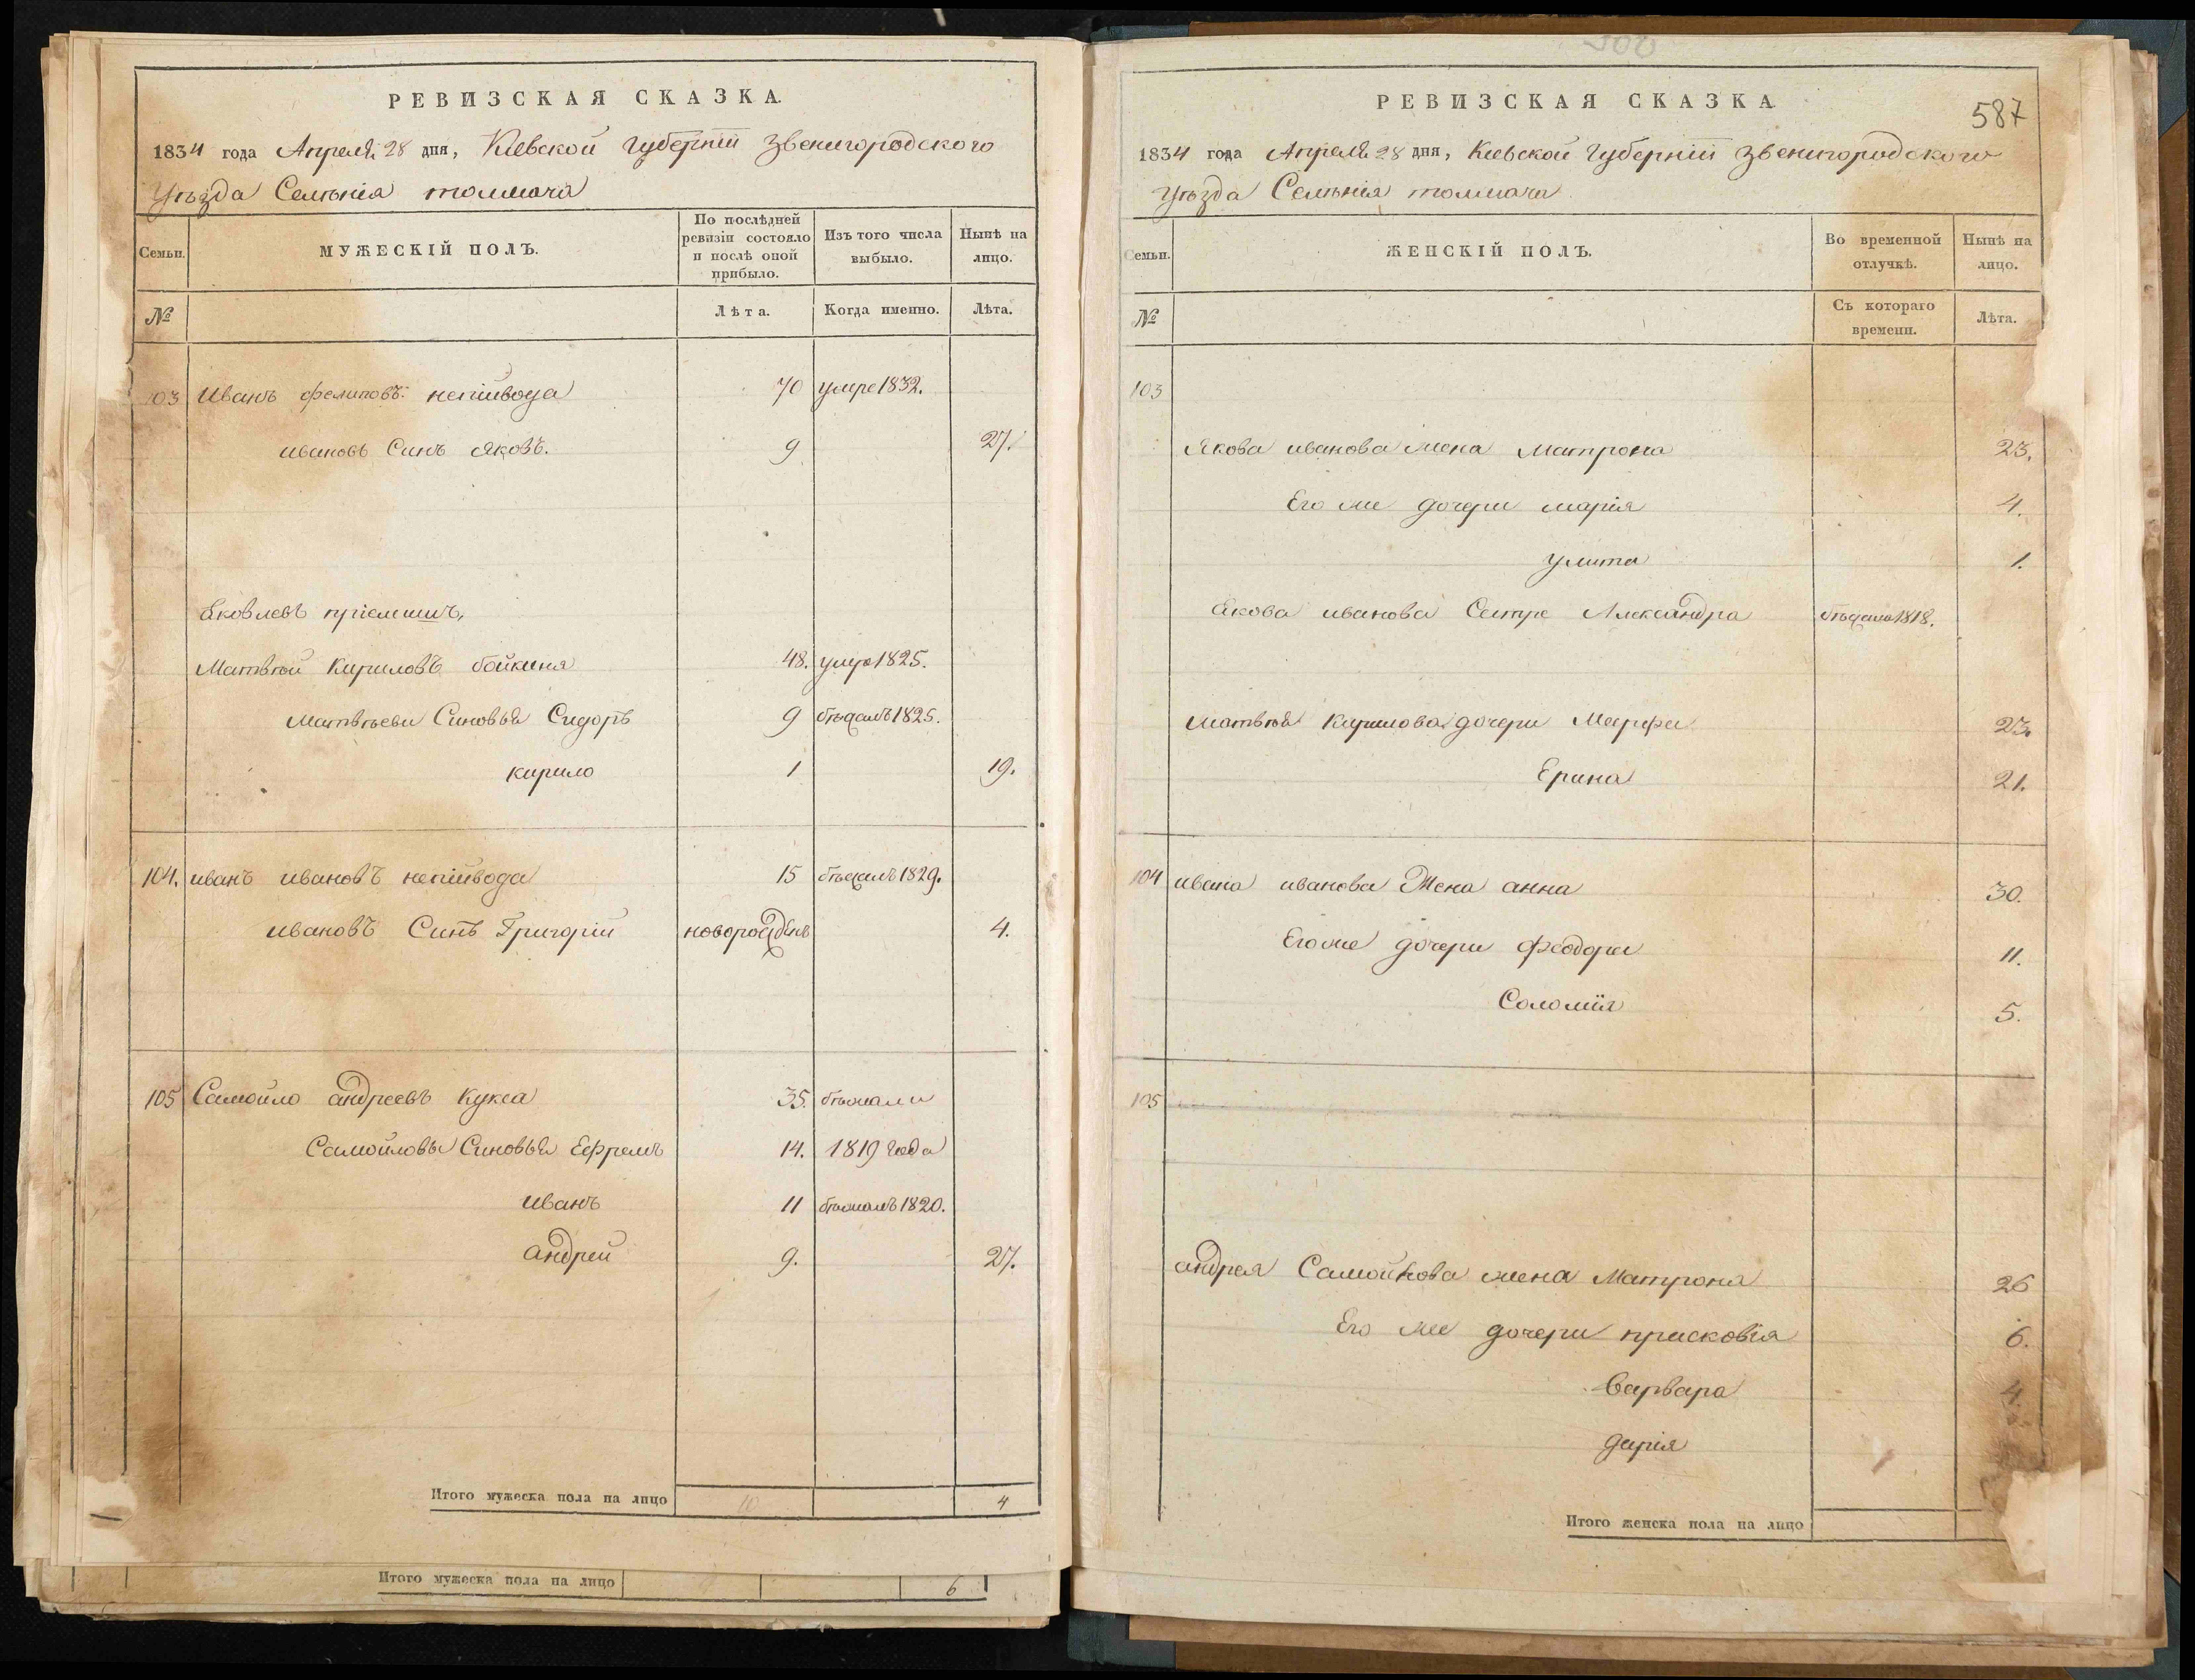 РЕВИЗСКАЯ СКАЗКА.
1834 года Апреля 28 дня, Кіевской Губерніи Звенигородского
Уѣзда Селѣнія толмача
Семьи. МУЖЕСКІЙ ПОЛЪ. По послѣдней ревизіи состояло и послѣ оной прибыло. Изъ того числа выбыло. Нынѣ на лицо.
№ Лѣта. Когда именно. Лѣта.
103 Иванъ филиповъ непійвода 70 умре 1832.
ивановъ Синъ Яковъ. 9 27.
Яковлевъ пріемишъ,
Матвѣй Кириловъ бойкиня 48. умре 1825.
Матвѣеви Синовья Сидоръ 9 бѣжалъ 1825.
кирило 1 19.
104. иванъ ивановъ непійвода 15 бѣжалъ 1829.
ивановъ Синъ Григорій новорожденъ 4.
105 Самойло андреевъ Кукса 35. бѣжали
Самойловы Синовья Ефремъ 14. 1819 года
иванъ 11 бѣжалъ 1820.
андрей 9. 27.
Итого мужеска пола на лицо 10 4
Итого мужеска пола на лицо 6
РЕВИЗСКАЯ СКАЗКА.
587
1834 года Апреля 28 дня, Кіевской Губерніи Звенигородского
Уѣзда Селѣнія толмача
Семьи. ЖЕНСКІЙ ПОЛЪ. Во временной отлучкѣ. Нынѣ на лицо.
№ Съ котораго времени. Лѣта.
103
Якова иванова жена Матрона 23.
Его же дочери марія 4.
улита 1.
Якова иванова Сестра Александра бѣжала 1818.
Матвѣя Кирилова дочери Марфа 23.
Ерина 21.
104 ивана иванова Жена анна 30.
Его же дочери феодора 11.
Соломія 5.
105
андрея Самойлова жена Матрона 26
Его же дочери прасковія 6.
Варвара 4.
дарія
Итого женска пола на лицо